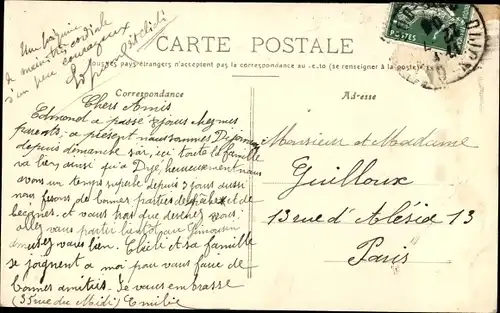 Une poignée
de main très cordiale
d'un peu courageux
CARTE POSTALE
Tous les pays étrangers n'acceptent pas la correspondance au recto (se renseigner à la poste)
Correspondance
Adresse
POSTES
DIJON
Chers Amis
Edmond a passé 8 jours chez mes
parents. a présent nous sommes Dijonnais
depuis dimanche soir, ici toute la famille
va bien ainsi qu'a heureusement nous
avons un temps superbe depuis 3 jours aussi
nous faisons de bonnes parties de pêche et de
et vous
allez vous partir bientôt au Limousin
amusez vous bien. Elise et sa famille
se joignent a moi pour vous faire de
bonnes amitiés. Je vous embrasse
(35 rue du Midi) Emilie
Monsieur et Madame
Guilloux
13 rue d'Alésia 13
Paris